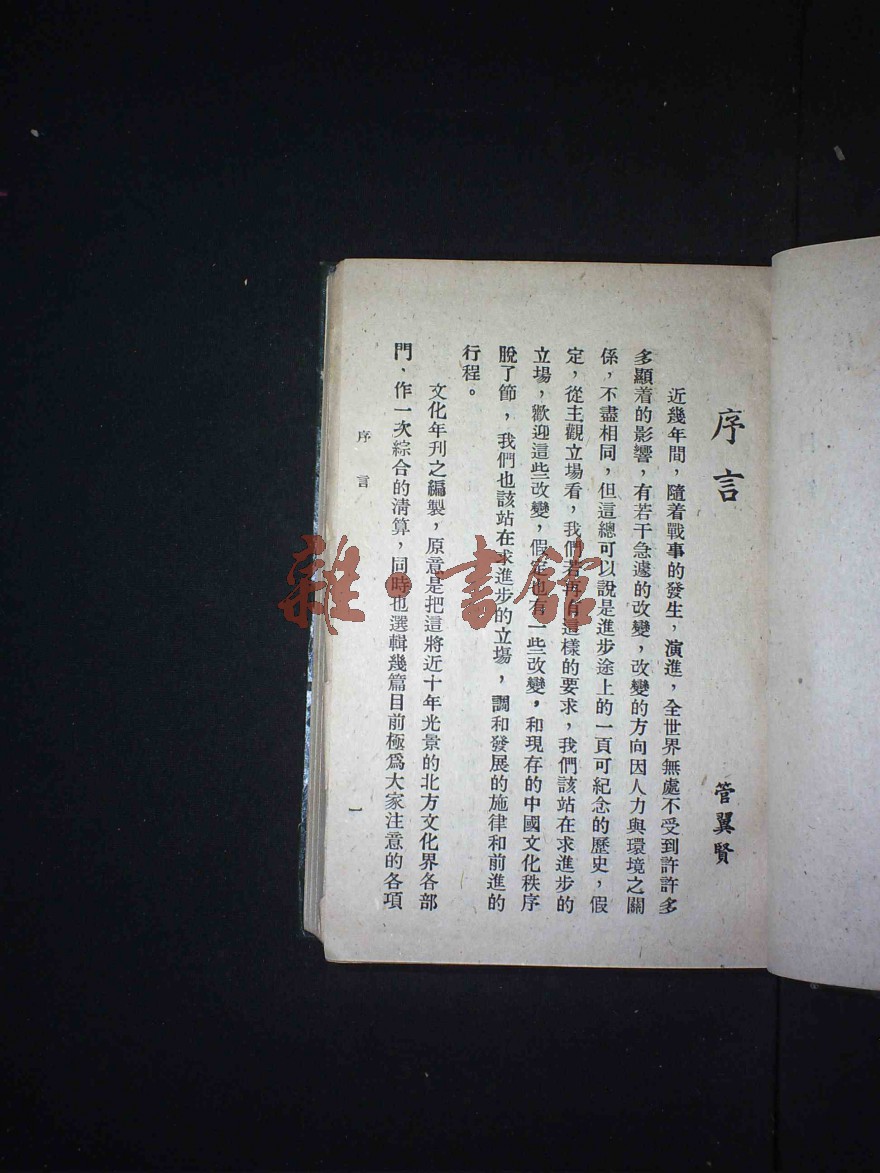 序言
管翼賢
近幾年間，隨着戰事的發生，演進，全世界無處不受到許許多
多顯着的影響，有若干急遽的改變，改變的方向因人力與環境之關
係，不盡相同，但這總可以說是進步途上的一頁可紀念的歷史，假
定，從主觀立場看，我們若再有這樣的要求，我們該站在求進步的
立場，歡迎這些改變，假定也有一些改變，和現存的中國文化秩序
脫了節，我們也該站在求進步的立場，調和發展的施律和前進的
行程。
文化年刊之編製，原意是把這將近十年光景的北方文化界各部
門、作一次綜合的淸算，同時也選輯幾篇目前極爲大家注意的各項
序言
一
雜·書館